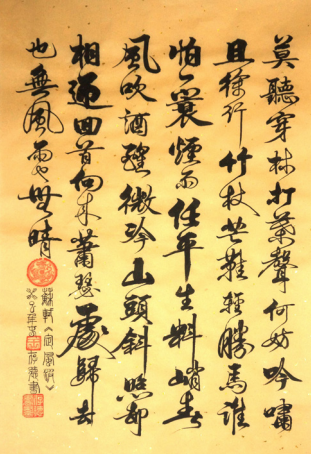 莫聽穿林打葉聲何妨吟嘯
且徐行竹杖芒鞋輕勝馬誰
怕一蓑煙雨任平生料峭春
風吹酒醒微冷山頭斜照卻
相迎回首向來蕭瑟處歸去
也無風雨也無晴
蘇軾《定風波》